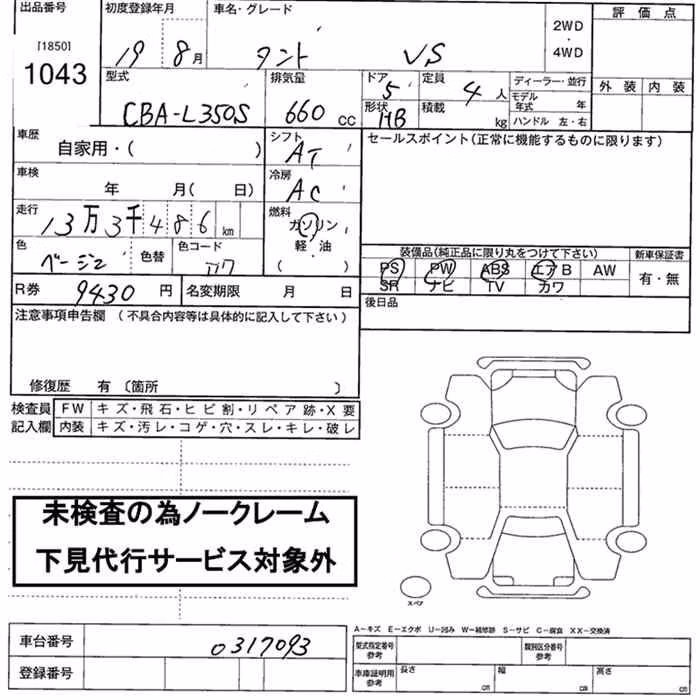 出品番号 初度登録年月 車名・グレード 評価点
[1850] 1043 19 8月 タント VS 2WD・4WD 外装 内装
型式 排気量 ドア 定員 ディーラー・並行
CBA-L350S 660 CC 5 4人 モデル年式 年
形状 HB 積載 kg ハンドル 左・右
車歴 シフト セールスポイント(正常に機能するものに限ります)
自家用・( ) AT
車検 冷房
年 月( 日) AC
走行 燃料
13万3千486km ガソリン・軽・油 ( )
色 色替 色コード 装備品(純正品に限り丸をつけて下さい) 新車保証書
ベージュ PS PW ABS エアB AW 有・無
SR ナビ TV カワ
R券 9430円 名変期限 月 日 後日品
注意事項申告欄 (不具合内容等は具体的に記入して下さい)
修復歴 有 (箇所 )
検査員 FW キズ・飛石・ヒビ割・リペア跡・X要
記入欄 内装 キズ・汚レ・コゲ・穴・スレ・キレ・破レ
未検査の為ノークレーム
下見代行サービス対象外
スペア
A-キズ E-エクボ U-凹み W-補修跡 S-サビ C-腐食 XX-交換済
車台番号 0317093 型式指定番号 参考 類別区分番号 参考
登録番号 車庫証明用 参考 長さ cm 幅 cm 高さ cm